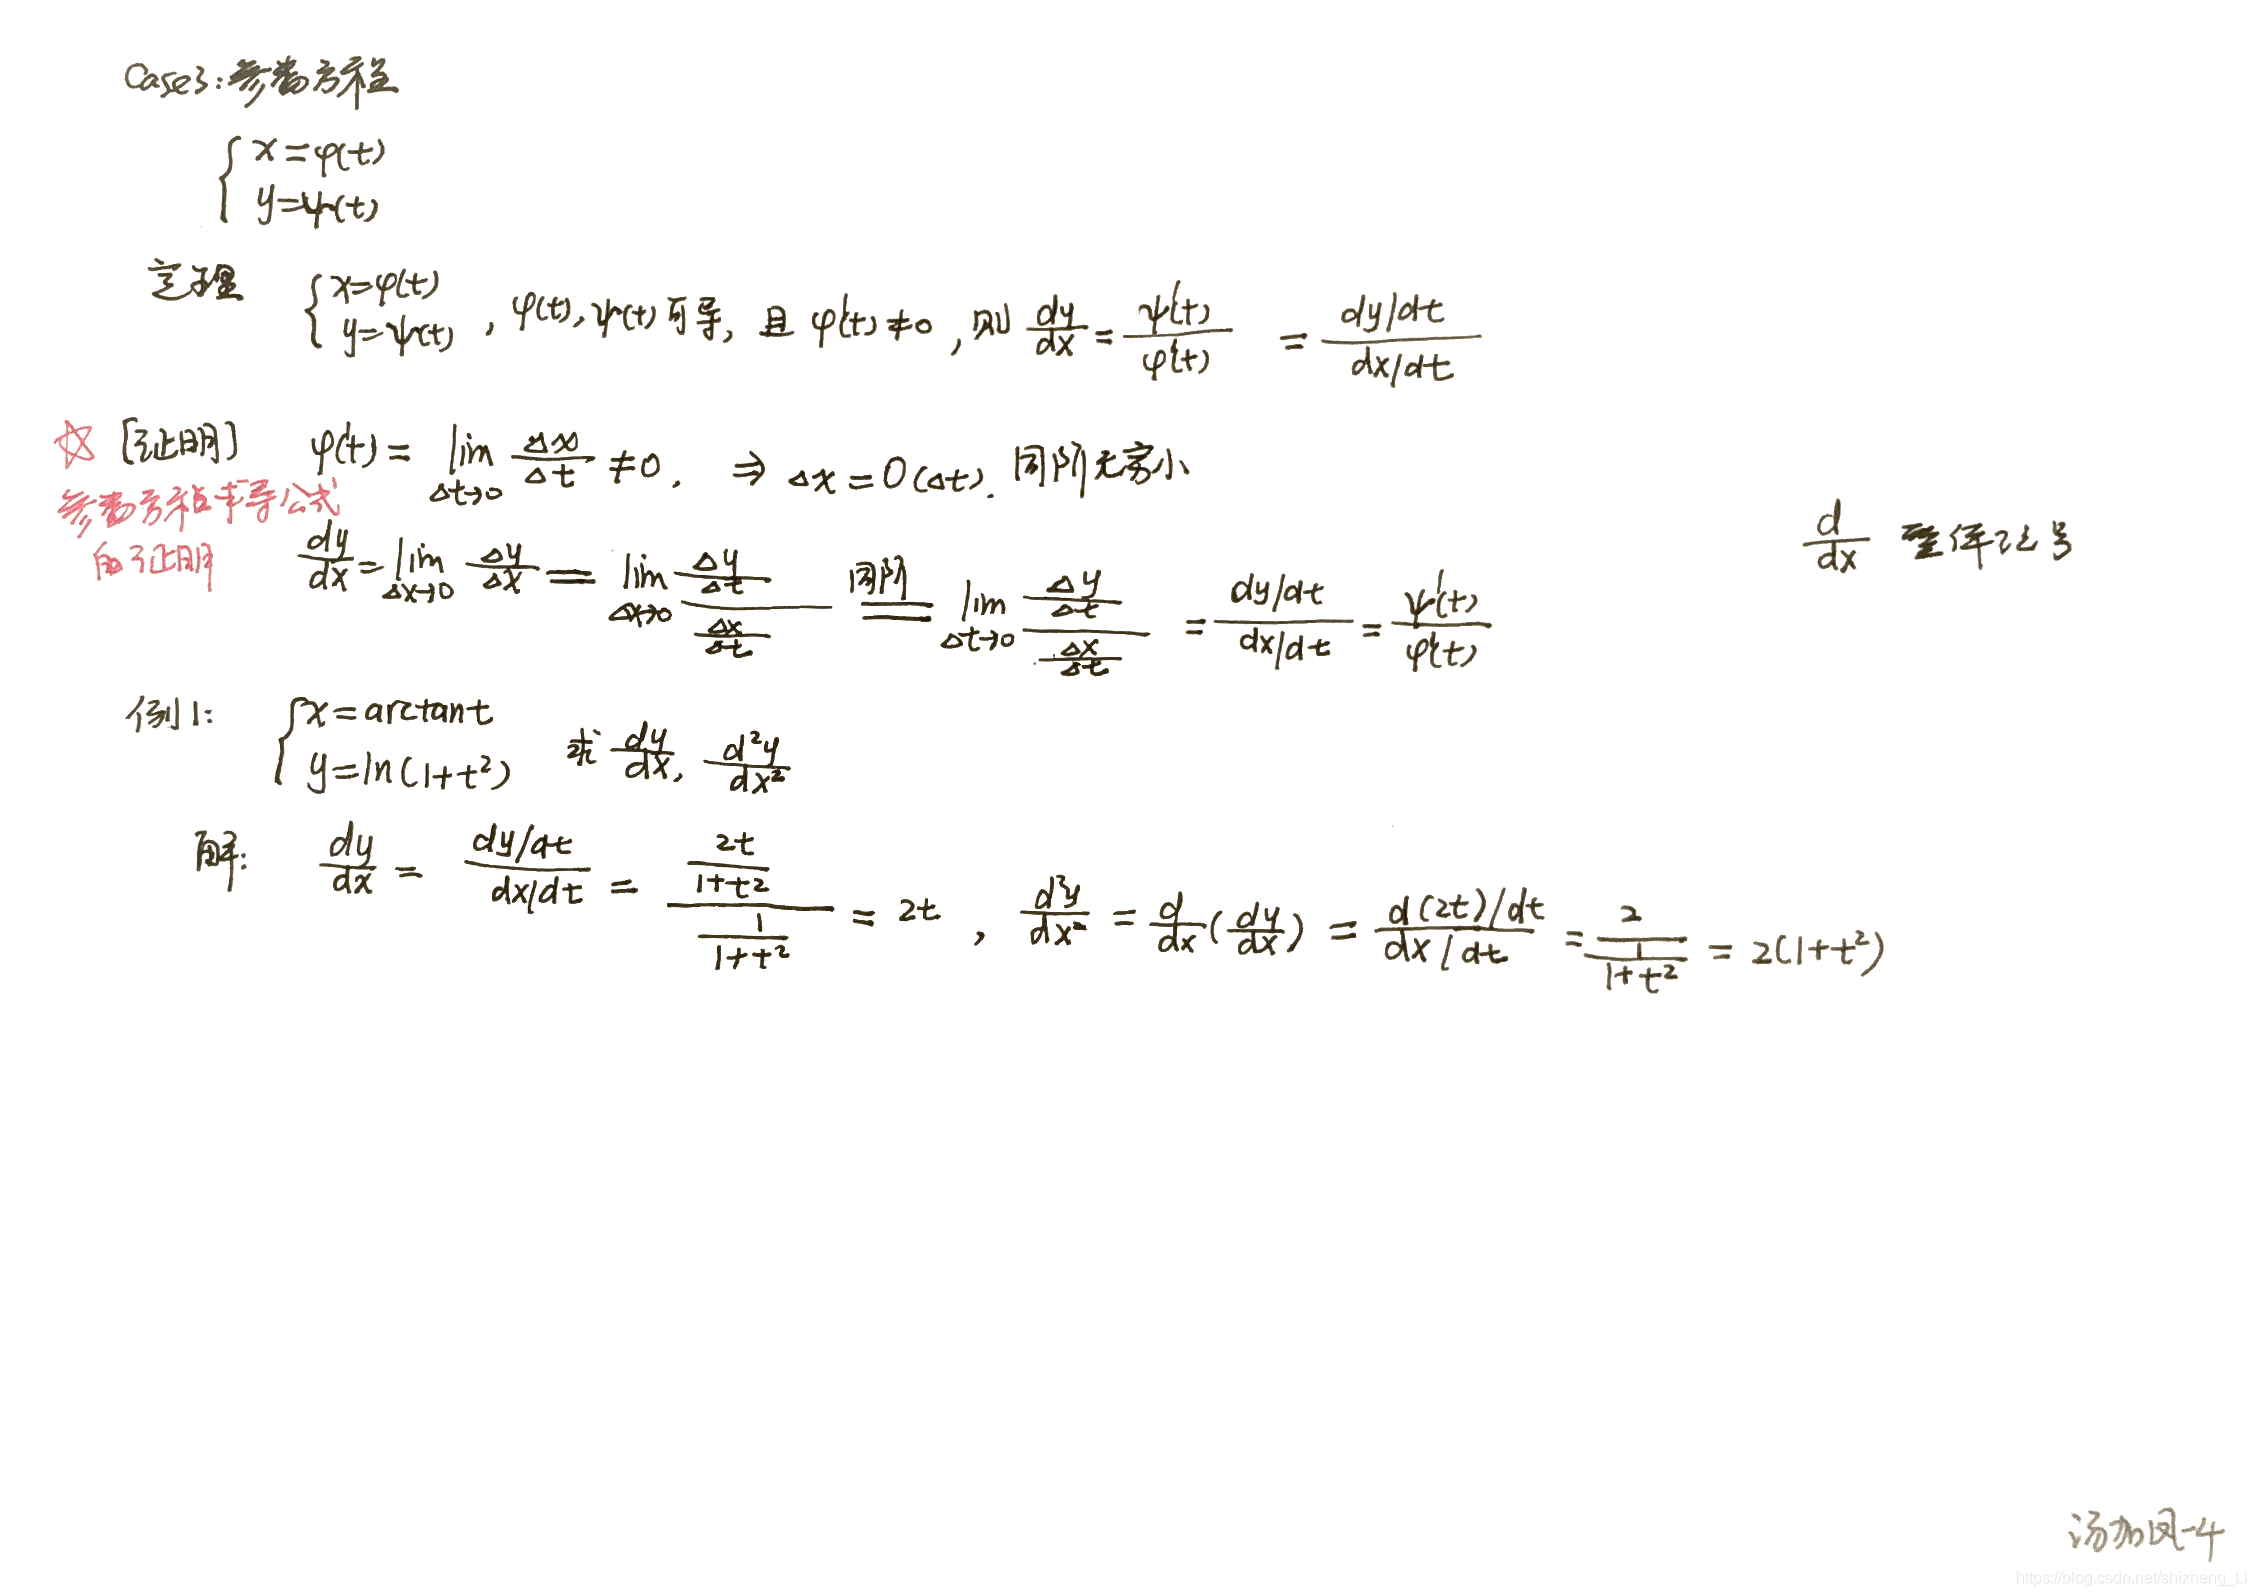 Case3:参数方程
{ x=φ(t)
y=ψ(t)
定理 { x=φ(t) y=ψ(t) , φ(t),ψ(t)可导, 且 φ'(t)≠0 , 则 dy/dx = ψ'(t)/φ'(t) = (dy/dt)/(dx/dt)
☆ [证明] φ'(t) = lim Δt→0 Δx/Δt ≠0. ⇒ Δx = O(Δt). 同阶无穷小
参数方程求导公式
的证明
dy/dx = lim Δx→0 Δy/Δx = lim Δx→0 (Δy/Δt)/(Δx/Δt) 同阶 = lim Δt→0 (Δy/Δt)/(Δx/Δt) = (dy/dt)/(dx/dt) = ψ'(t)/φ'(t)
d/dx 整体记号
例1: { x=arctant y=ln(1+t²) 求 dy/dx, d²y/dx²
解: dy/dx = (dy/dt)/(dx/dt) = (2t/(1+t²))/(1/(1+t²)) = 2t , d²y/dx² = d/dx(dy/dx) = (d(2t)/dt)/(dx/dt) = 2/(1/(1+t²)) = 2(1+t²)
汤加凤-4
https://blog.csdn.net/shizheng_Li